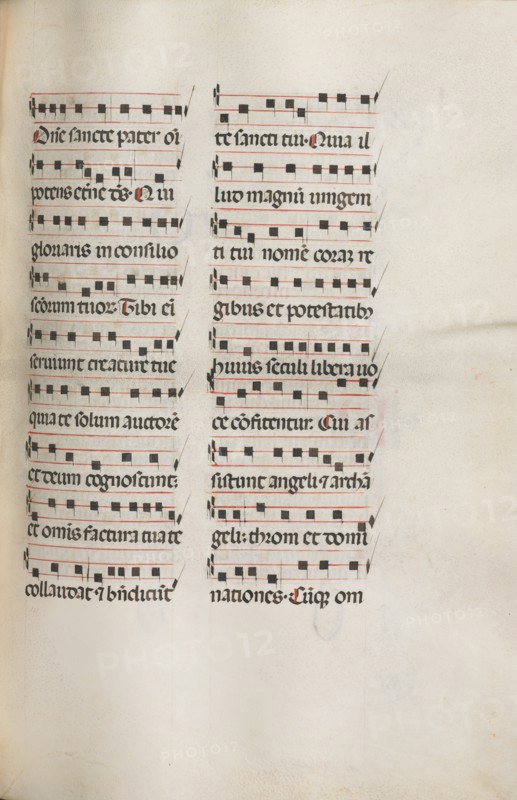 Dñe sancte pater oī
potens etñe ds̄. Q ui
gloriaris in consilio
sc̄orum tuor: Tibi eī
seruiunt creature tue
quia te solum auctorē
et deum cognoscunt:
et omīs factura tua te
collaudat ⁊ bñdicūt
te sancti tui. Quia il
lud magnū unigeni
ti tui nomē coraȝ re
gibus et potestatibȝ
huius seculi libera uo
ce cōfitentur. Cui as
sistunt angeli ⁊ archā
geli: throni et domi
nationes. Cūqȝ om